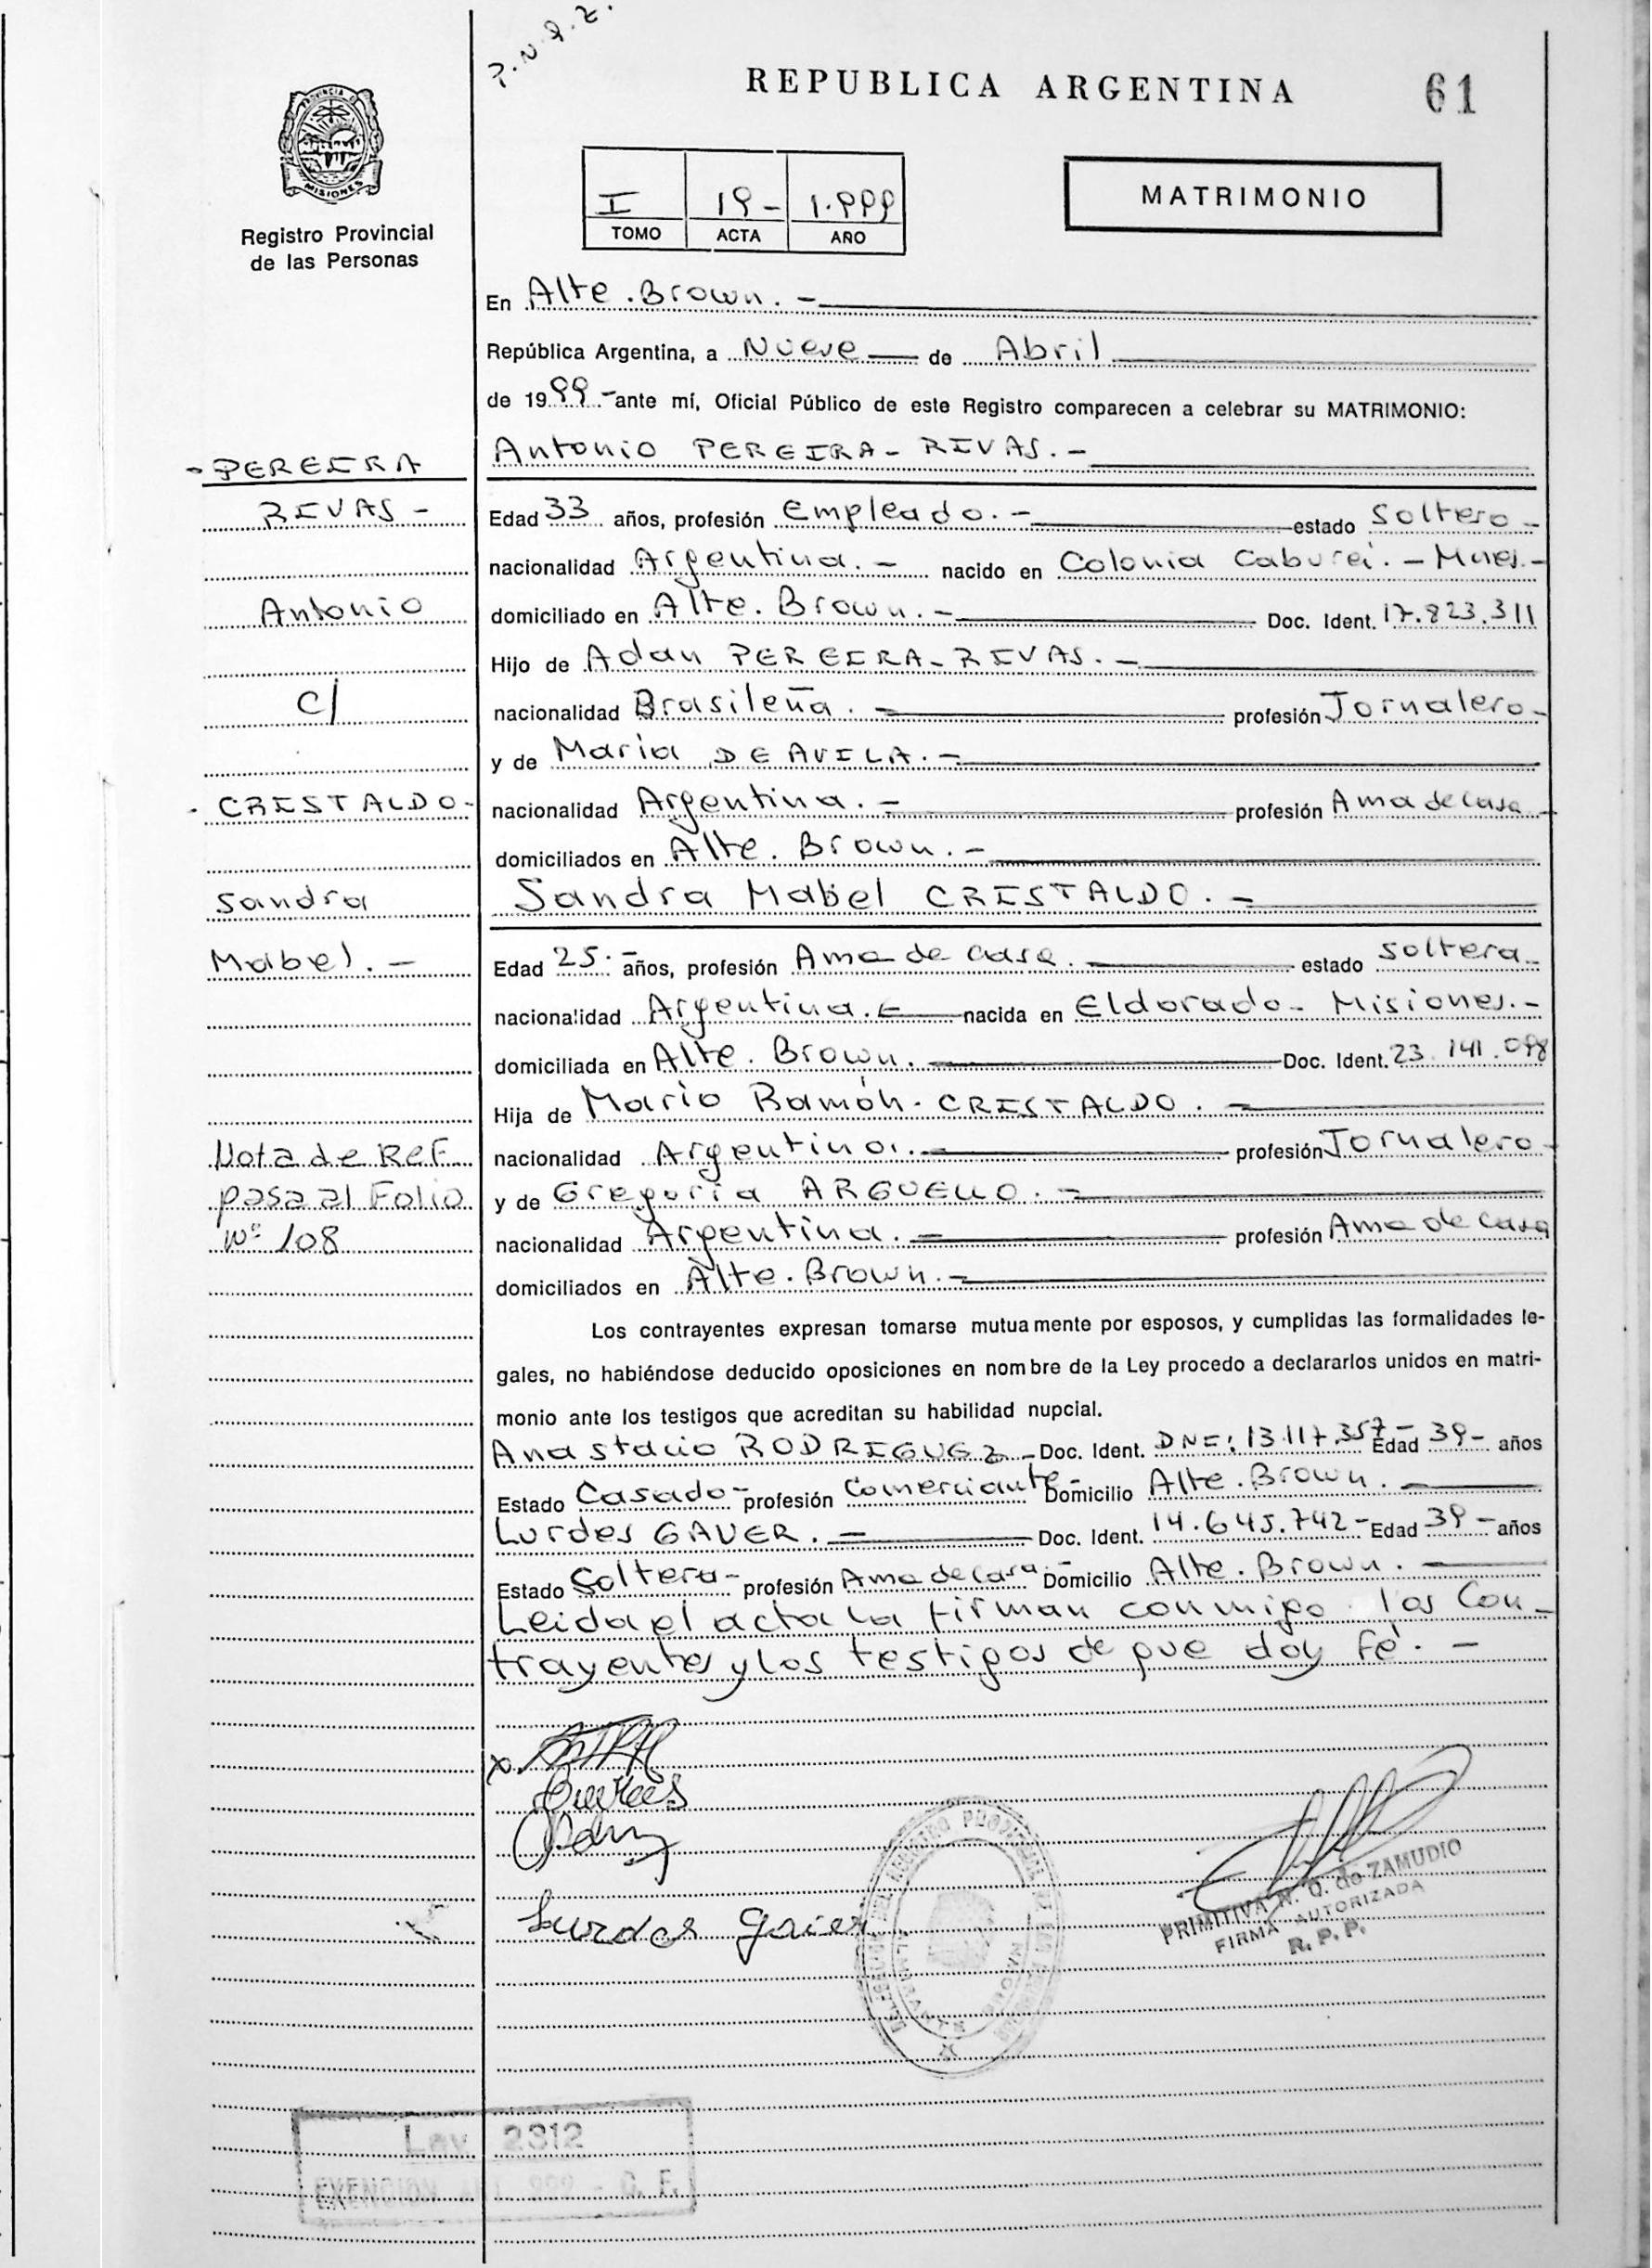 P.N.9.Z.
REPUBLICA ARGENTINA
61
PROVINCIA D
MISIONES
Registro Provincial
de las Personas
I 19- 1.999
TOMO ACTA AÑO
MATRIMONIO
En Alte. Brown. -
República Argentina, a Nueve de Abril
de 1999.- ante mí, Oficial Público de este Registro comparecen a celebrar su MATRIMONIO:
Antonio PEREIRA-RIVAS. -
- PEREIRA
RIVAS -
Antonio
c/
- CRISTALDO-
Sandra
Mabel. -
Nota de Ref
pasa al Folio
Nº 108
Edad 33 años, profesión Empleado. - estado Soltero -
nacionalidad Argentina. - nacido en Colonia Caburei. - Mnes. -
domiciliado en Alte. Brown. - Doc. Ident. 17.823.311
Hijo de Adan PEREIRA-RIVAS. -
nacionalidad Brasileña. - profesión Jornalero -
y de Maria DE AVILA. -
nacionalidad Argentina. - profesión Ama de Casa
domiciliados en Alte. Brown. -
Sandra Mabel CRISTALDO. -
Edad 25.- años, profesión Ama de casa. estado Soltera -
nacionalidad Argentina. - nacida en Eldorado - Misiones. -
domiciliada en Alte. Brown. Doc. Ident. 23.141.098
Hija de Mario Ramón CRISTALDO. -
nacionalidad Argentino. - profesión Jornalero -
y de Gregoria ARGUELLO. -
nacionalidad Argentina. - profesión Ama de Casa
domiciliados en Alte. Brown. -
Los contrayentes expresan tomarse mutuamente por esposos, y cumplidas las formalidades le-
gales, no habiéndose deducido oposiciones en nombre de la Ley procedo a declararlos unidos en matri-
monio ante los testigos que acreditan su habilidad nupcial.
Anastacio RODRIGUEZ - Doc. Ident. DNI: 13.117.357 - Edad 39 - años
Estado Casado - profesión Comerciante - Domicilio Alte. Brown. -
Lurdes GAUER. - Doc. Ident. 14.645.742 - Edad 39 - años
Estado Soltera - profesión Ama de Casa - Domicilio Alte. Brown. -
Leida el acta la firman conmigo los Con-
trayentes y los testigos de que doy Fé. -
Lurdes Gaier
PRIMITIVA N. Q. de ZAMUDIO
FIRMA AUTORIZADA
R. P. P.
Ley 2312
EXENCION